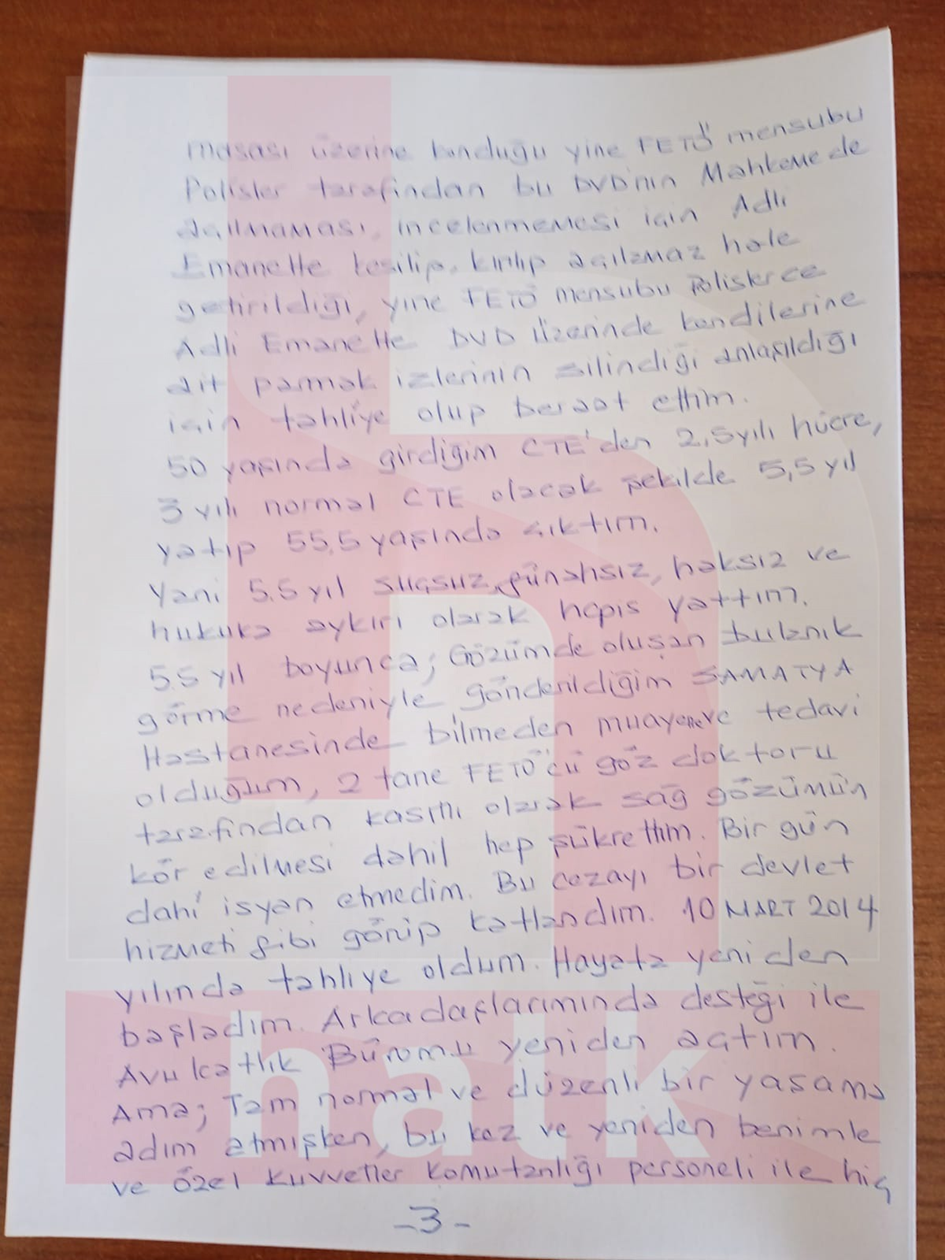 masası üzerine konduğu yine FETÖ mensubu
Polisler tarafından bu DVD'nin Mahkemede
açılmaması, incelenmemesi için Adli
Emanette kesilip, kırılıp açılamaz hale
getirildiği, yine FETÖ mensubu Polislerce
Adli Emanette DVD üzerinde kendilerine
ait parmak izlerinin silindiği anlaşıldığı
için tahliye olup beraat ettim.
50 yaşında girdiğim CTE'den 2,5 yılı hücre,
3 yılı normal CTE olacak şekilde 5,5 yıl
yatıp 55,5 yaşında çıktım.
Yani 5.5 yıl suçsuz, günahsız, haksız ve
hukuka aykırı olarak hapis yattım.
5.5 yıl boyunca; Gözümde oluşan bulanık
görme nedeniyle gönderildiğim SAMATYA
Hastanesinde bilmeden muayene ve tedavi
olduğum, 2 tane FETÖ'cü göz doktoru
tarafından kasıtlı olarak sağ gözümün
kör edilmesi dahil hep şükrettim. Bir gün
dahi isyan etmedim. Bu cezayı bir devlet
hizmeti gibi görüp katlandım. 10 MART 2014
yılında tahliye oldum. Hayata yeniden
başladım. Arkadaşlarımında desteği ile
Avukatlık Büromu yeniden açtım.
Ama; Tam normal ve düzenli bir yaşama
adım atmışken, bu kez ve yeniden benimle
ve özel Kuvvetler komutanlığı personeli ile hiç
-3-
halk